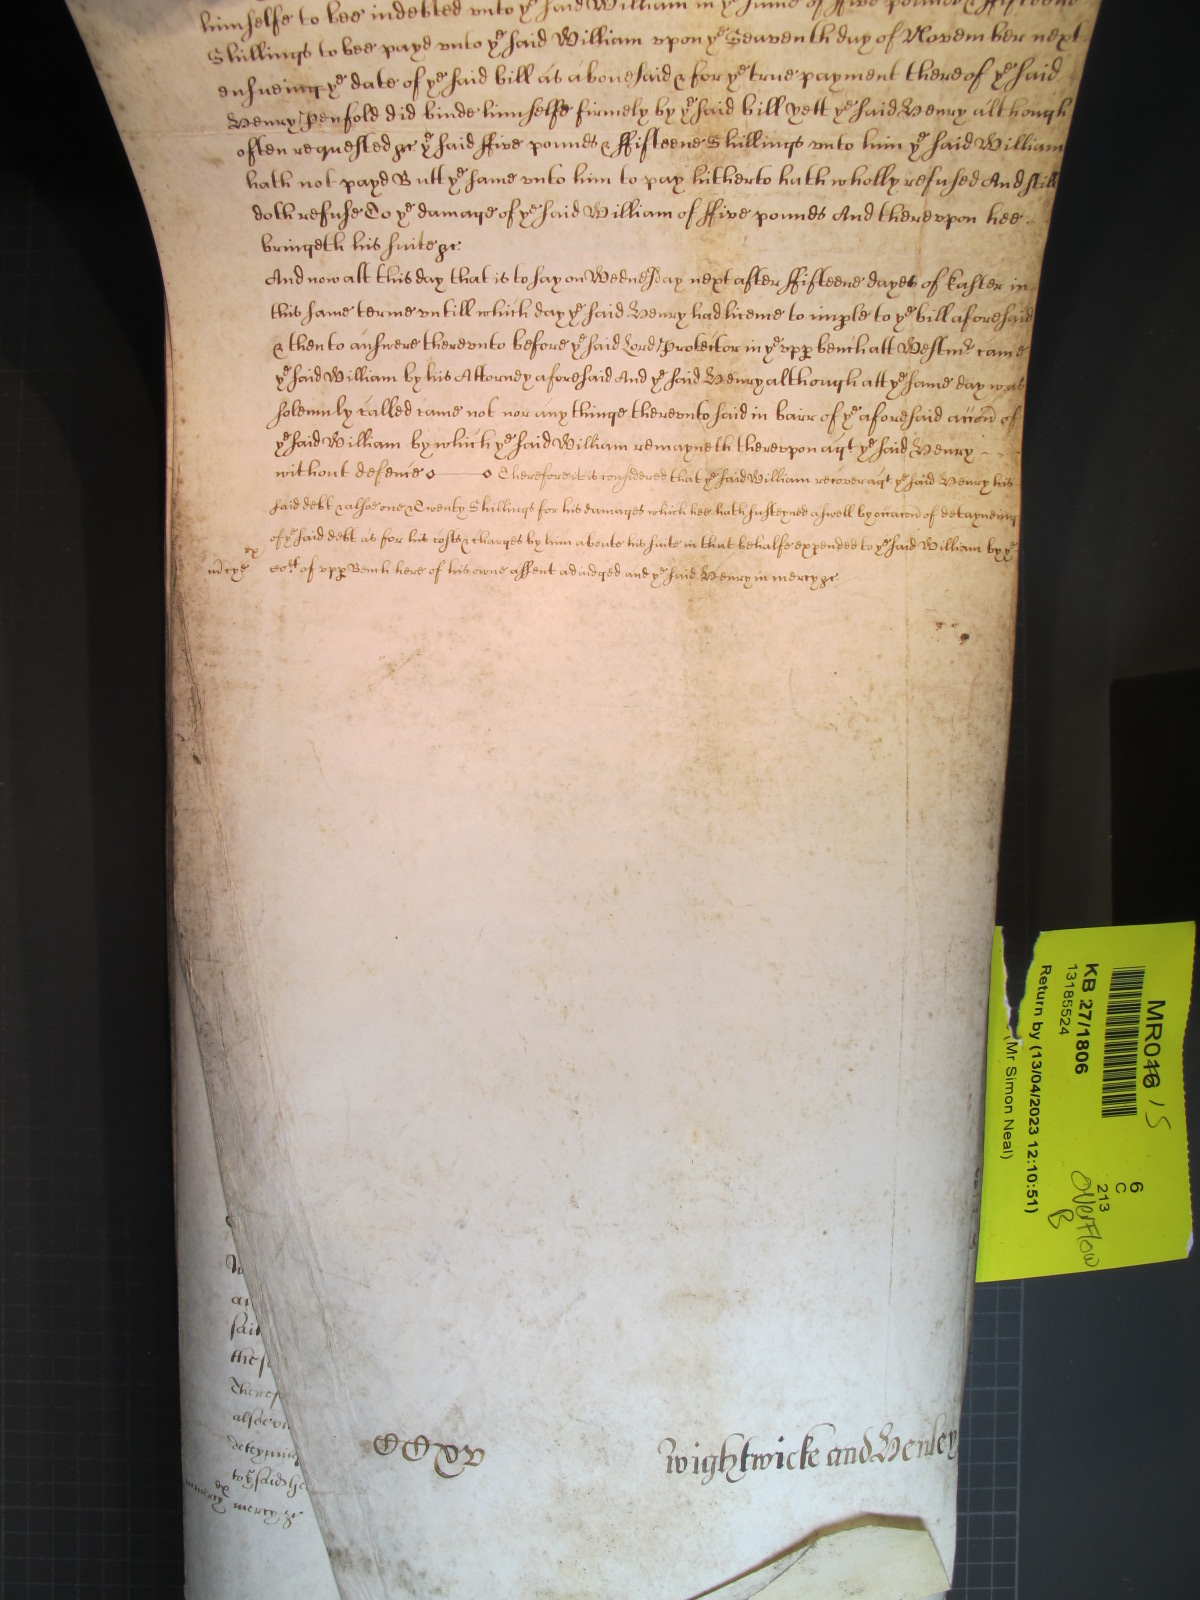 himselfe to bee indebted vnto ye said William in ye summe of ffive pounds & ffifteene
Shillings to bee payd vnto ye said William vpon ye Seaventh day of November next
ensueing ye date of ye said bill as abovesaid & for ye true payment thereof ye said
Henry Penfold did binde himselfe firmely by ye said bill yett ye said Henry although
often requested &c ye said ffive pounds & ffifteene Shillings vnto him ye said William
hath not payd Butt ye same vnto him to pay hitherto hath wholly refused And still
doth refuse To ye damage of ye said William of ffive pounds And therevpon hee
bringeth his suite &c
And now att this day that is to say on Wednesday next after ffifteene dayes of Easter in
this same terme vntill which day ye said Henry had licence to imple to ye bill aforesaid
& then to answere therevnto before ye said Lord Protector in ye vpp bench att Westmr came
ye said William by his Attorney aforesaid And ye said Henry although att ye same day was
solemnly called came not nor any thinge therevnto said in barr of ye aforesaid accion of
ye said William by which ye said William remayneth therevpon agt ye said Henry
without defence Therefore it is considered that ye said William recover agt ye said Henry his
said debt & alsoe one & Twenty Shillings for his damages which hee hath susteyned aswell by occacon of deteyneing
of ye said debt as for his costs & charges by him aboute his suite in that behalfe expended to ye said William by ye
ex
mcye cort of vpp Bench here of his owne assent adiudged and ye said Henry in mercy &c
MR046 15
KB 27/1806
13185524
Return by (13/04/2023 12:10:51)
(Mr Simon Neal)
6
C
213
Overflow
B
an
said
alsoe
to ye said
ex
mercy mercy &c
CCXV
Wightwicke and Henley